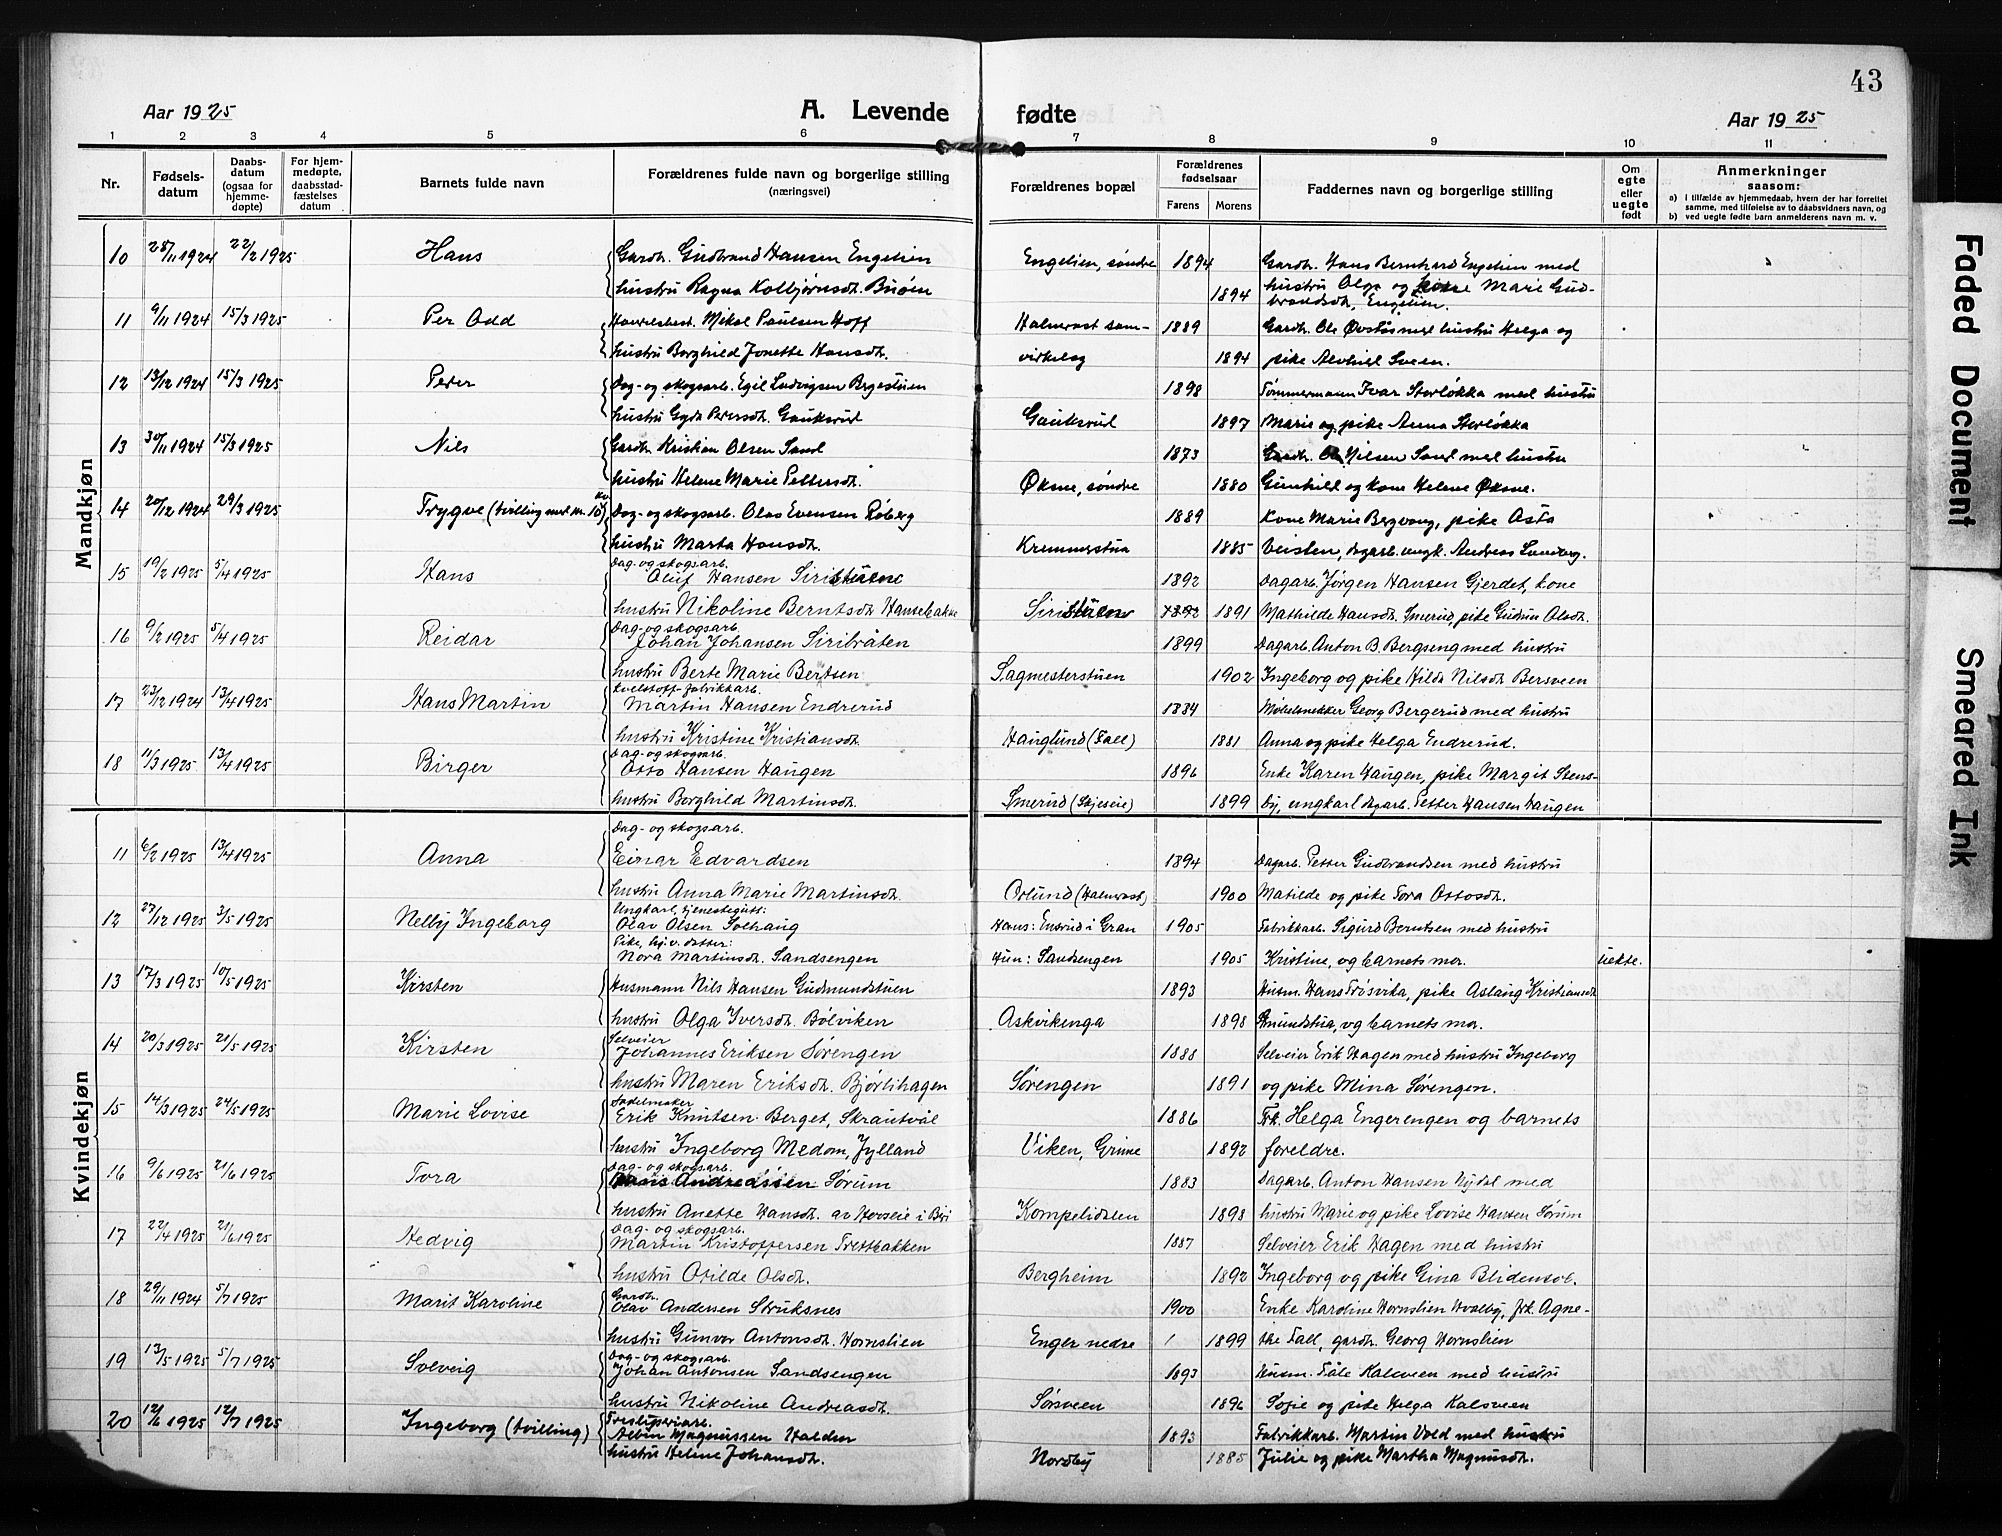 43
Aar 1925 A. Levende fødte Aar 1925
1 2 3 4 5 6 7 8 9 10 11
Nr. Fødselsdatum Daabsdatum (ogsaa for hjemmedøpte) For hjemmedøpte, daabsstadfæstelses datum Barnets fulde navn Forældrenes fulde navn og borgerlige stilling (næringsvei) Forældrenes bopæl Forældrenes fødselsaar Farens Morens Faddernes navn og borgerlige stilling Om egte eller uegte født Anmerkninger saasom:
a) i tilfælde av hjemmedaab, hvem der har forrettet samme, med tilføielse av to daabsvidners navn, og
b) ved uegte fødte barn anmelderens navn m. v.
Mandkjøn
10 28/11 1924 22/2 1925 Hans Gardb. Gudbrand Hansen Engelien Engelien, søndre 1894 Gardb. Hans Bernhard Engelien med
hustru Ragna Kolbjørnsdt. Buøen 1894 hustru Olga og kone Marie Gud-
brandsdt. Engelien.
11 9/11 1924 15/3 1925 Per Odd Handelsbest. Mikal Paulsen Hoff Halmrast sam- 1889 Gardb. Ole Øvstås med hustru Helga og
hustru Borghild Jonette Hansdt. virkelag 1894 pike Alvhild Sveen.
12 13/12 1924 15/3 1925 Peder Dag- og skogsarb. Egil Ludvigsen Bergestuen 1898 Tømmermann Ivar Storløkka med hustru
hustru Gyda Pedersdt. Gauksrud Gauksrud 1897 Marie og pike Anna Storløkka
13 30/11 1924 15/3 1925 Nils Gardb. Kristian Olsen Sand 1873 Gardb. Ole Nilsen Sand med hustru
hustru Helene Marie Pettersdt. Øksne, søndre 1880 Gunhild og kone Helene Øksne.
14 20/12 1924 29/3 1925 Trygve (tvilling med kv. nr. 10) Dag- og skogsarb. Olas Evensen Røberg 1889 Kone Marie Bergvang, pike Asta
hustru Marta Hansdt. Kremmerstua 1885 Veisten, dagarb. ungk. Andreas Lundberg.
15 19/2 1925 5/4 1925 Hans Dag- og skogsarb.
Oluf Hansen Siristuene 1892 Dagarb. Jørgen Hansen Gjerdet, kone
hustru Nikoline Berntsdt. Hansebakke Siristuene 1892 1891 Mathilde Hansdt. Smerud, pike Gudrun Olsdt.
16 9/2 1925 5/4 1925 Reidar Dag- og skogsarb.
Johan Johansen Siribråten 1899 Dagarb. Anton B. Bergseng med hustru
hustru Berte Marie Bertsen Sagmesterstuen 1902 Ingeborg og pike Hilda Nilsdt. Bersveen
17 23/12 1924 13/4 1925 Hans Martin Kvelstoff-fabrikkarb.
Martin Hansen Endrerud 1884 Møbelsnekker Georg Bergerud med hustru
hustru Kristine Kristiansdt. Hauglund (Fall) 1881 Anna og pike Helga Endrerud.
18 11/3 1925 13/4 1925 Birger Dag- og skogsarb.
Otto Hansen Haugen 1896 Enke Karen Haugen, pike Margit Stens-
hustru Borghild Martinsdt. Smerud (Skjeseie) 1899 by, ungkarl dagarb. Petter Hansen Haugen
Kvindekjøn
11 6/2 1925 13/4 1925 Anna Dag- og skogsarb.
Einar Edvardsen 1894 Dagarb. Petter Gudbrandsen med hustru
hustru Anna Marie Martinsdt. Orlund (Halmrast) 1900 Matilde og pike Tora Ottosdt.
12 27/12 1925 3/5 1925 Nelly Ingeborg Ungkarl, tjenestegutt:
Olav Olsen Solhaug Hans: Ensrud i Gran 1905 Fabrikkarb. Sigurd Berntsen med hustru
Pike, hj.v. datter:
Nora Martinsdt. Sandsengen Hun: Sandsengen 1905 Kristine, og barnets mor. uekte.
13 17/3 1925 10/5 1925 Kirsten Husmann Nils Hansen Gudmundstuen 1893 Husm. Hans Frøsvika, pike Aslaug Kristiansdt
hustru Olga Iversdt. Bølviken Askvikenga 1898 Åmundstua, og barnets mor.
14 20/3 1925 21/5 1925 Kirsten Selveier
Johannes Eriksen Sørengen 1888 Selveier Erik Hagen med hustru Ingeborg
hustru Maren Eriksdt. Bjørlihagen Sørengen 1891 og pike Mina Sørengen.
15 14/3 1925 24/5 1925 Marie Lovise Sadelmaker
Erik Knutsen Berget, Skrautvål 1886 Frk. Helga Engerengen og barnets
hustru Ingeborg Medom, Jylland Viken, Grime 1892 foreldre.
16 9/6 1925 21/6 1925 Tora Dag- og skogsarb.
Andreassen Sørum 1883 Dagarb. Anton Hansen Nydal med
hustru Anette Hansdt. av Hovseie i Biri Kompelidalen 1898 hustru Marie og pike Lovise Hansen Sørum
17 22/4 1925 21/6 1925 Hedvig Dag- og skogsarb.
Martin Kristoffersen Trettbakken 1887 Selveier Erik Hagen med hustru
hustru Otilde Olsdt. Bergheim 1892 Ingeborg og pike Gina Blidensol.
18 29/11 1924 5/7 1925 Marit Karoline Gardb.
Olav Andersen Struksnes 1900 Enke Karoline Hornslien Hvalby, frk. Agne-
hustru Gunvor Antonsdt. Hornslien Enger nedre 1899 the Fall, gardb. Georg Hornslien
19 13/5 1925 5/7 1925 Solveig Dag- og skogsarb.
Johan Antonsen Sandsengen 1893 Husm. Påle Kalsveen med hustru
hustru Nikoline Andreasdt. Sørsveen 1896 Sofie og pike Helga Kalsveen
20 12/6 1925 12/7 1925 Ingeborg (tvilling) Tresliperiarb.
Albin Magnussen Halden 1893 Fabrikkarb. Martin Vold med hustru
hustru Helene Johansdt. Nordby 1885 Julie og pike Martha Magnusdt.
Faded Document
Smeared Ink